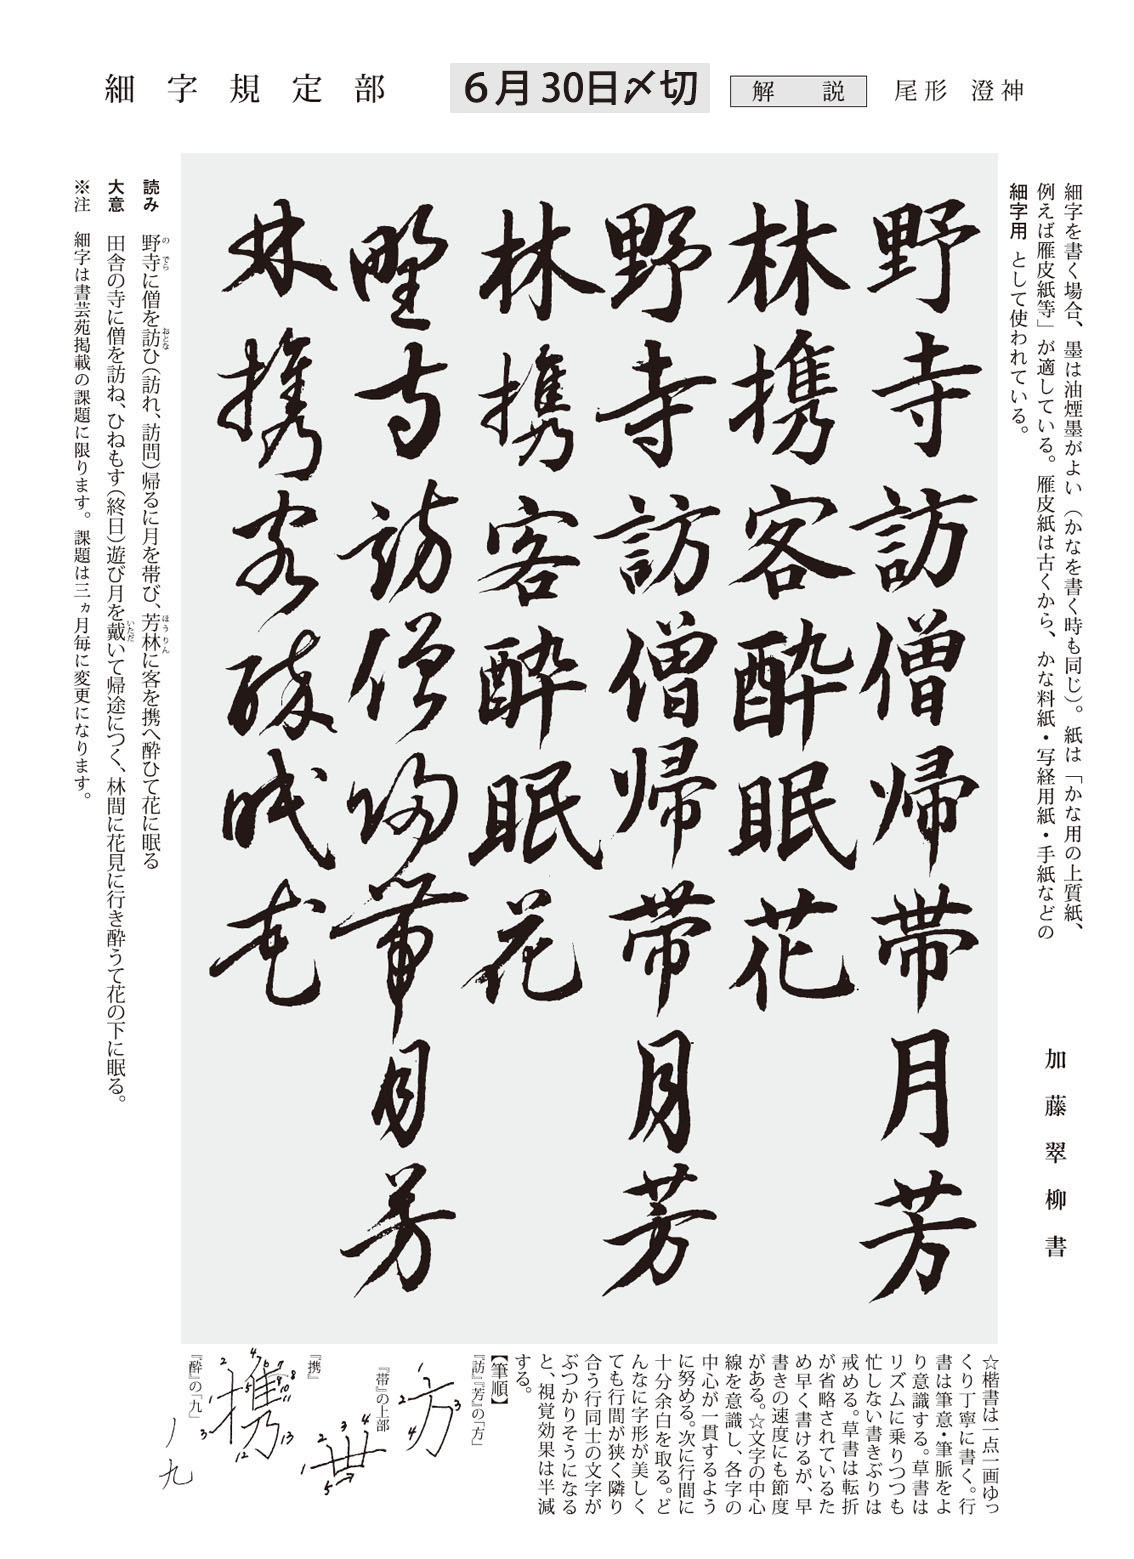 細字規定部
6月30日〆切
解説
尾形 澄神
細字を書く場合、墨は油煙墨がよい（かなを書く時も同じ）。紙は「かな用の上質紙、
例えば雁皮紙等」が適している。雁皮紙は古くから、かな料紙・写経用紙・手紙などの
細字用 として使われている。
加藤翠柳書
野寺訪僧帰帯月芳
林携客酔眠花
野寺訪僧帰帯月芳
林携客酔眠花
野寺訪僧帰帯月芳
林携客酔眠花
読み 野寺に僧を訪ひ（訪れ、訪問）帰るに月を帯び、芳林に客を携へ酔ひて花に眠る
の でら おとな ほうりん
大意 田舎の寺に僧を訪ね、ひねもす（終日）遊び月を戴いて帰途につく、林間に花見に行き酔うて花の下に眠る。
いただ
※注 細字は書芸苑掲載の課題に限ります。課題は三ヵ月毎に変更になります。
☆楷書は一点一画ゆっ
くり丁寧に書く。行
書は筆意・筆脈をよ
り意識する。草書は
リズムに乗りつつも
忙しない書きぶりは
戒める。草書は転折
が省略されているた
め早く書けるが、早
書きの速度にも節度
がある。☆文字の中心
線を意識し、各字の
中心が一貫するよう
に努める。次に行間に
十分余白を取る。ど
んなに字形が美しく
ても行間が狭く隣り
合う行同士の文字が
ぶつかりそうになる
と、視覚効果は半減
する。
【筆順】
『訪』『芳』の「方」
方
1 2 3 4
『帯』の上部
1 2 3 4 5
『携』
携
1 2 3 4 5 6 7 8 9 10 11 12 13
『酔』の「九」
ノ九